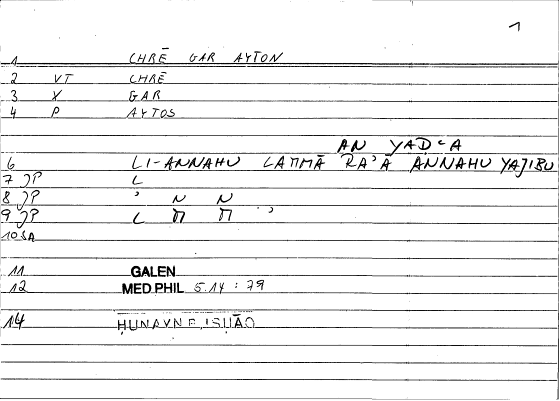 1
1 CHRĒ GAR AYTON
2 VT CHRĒ
3 X GAR
4 P AYTOS
AN YADʿA
6 LI-ANNAHU LAMMĀ RAʾĀ ANNAHU YAJIBU
7 JP L
8 JP ʾ N N
9 JP L M M ʾ
10 SA
11 GALEN
12 MED PHIL 5.14 : 79
14 ḤUNAYN E ISḤĀQ